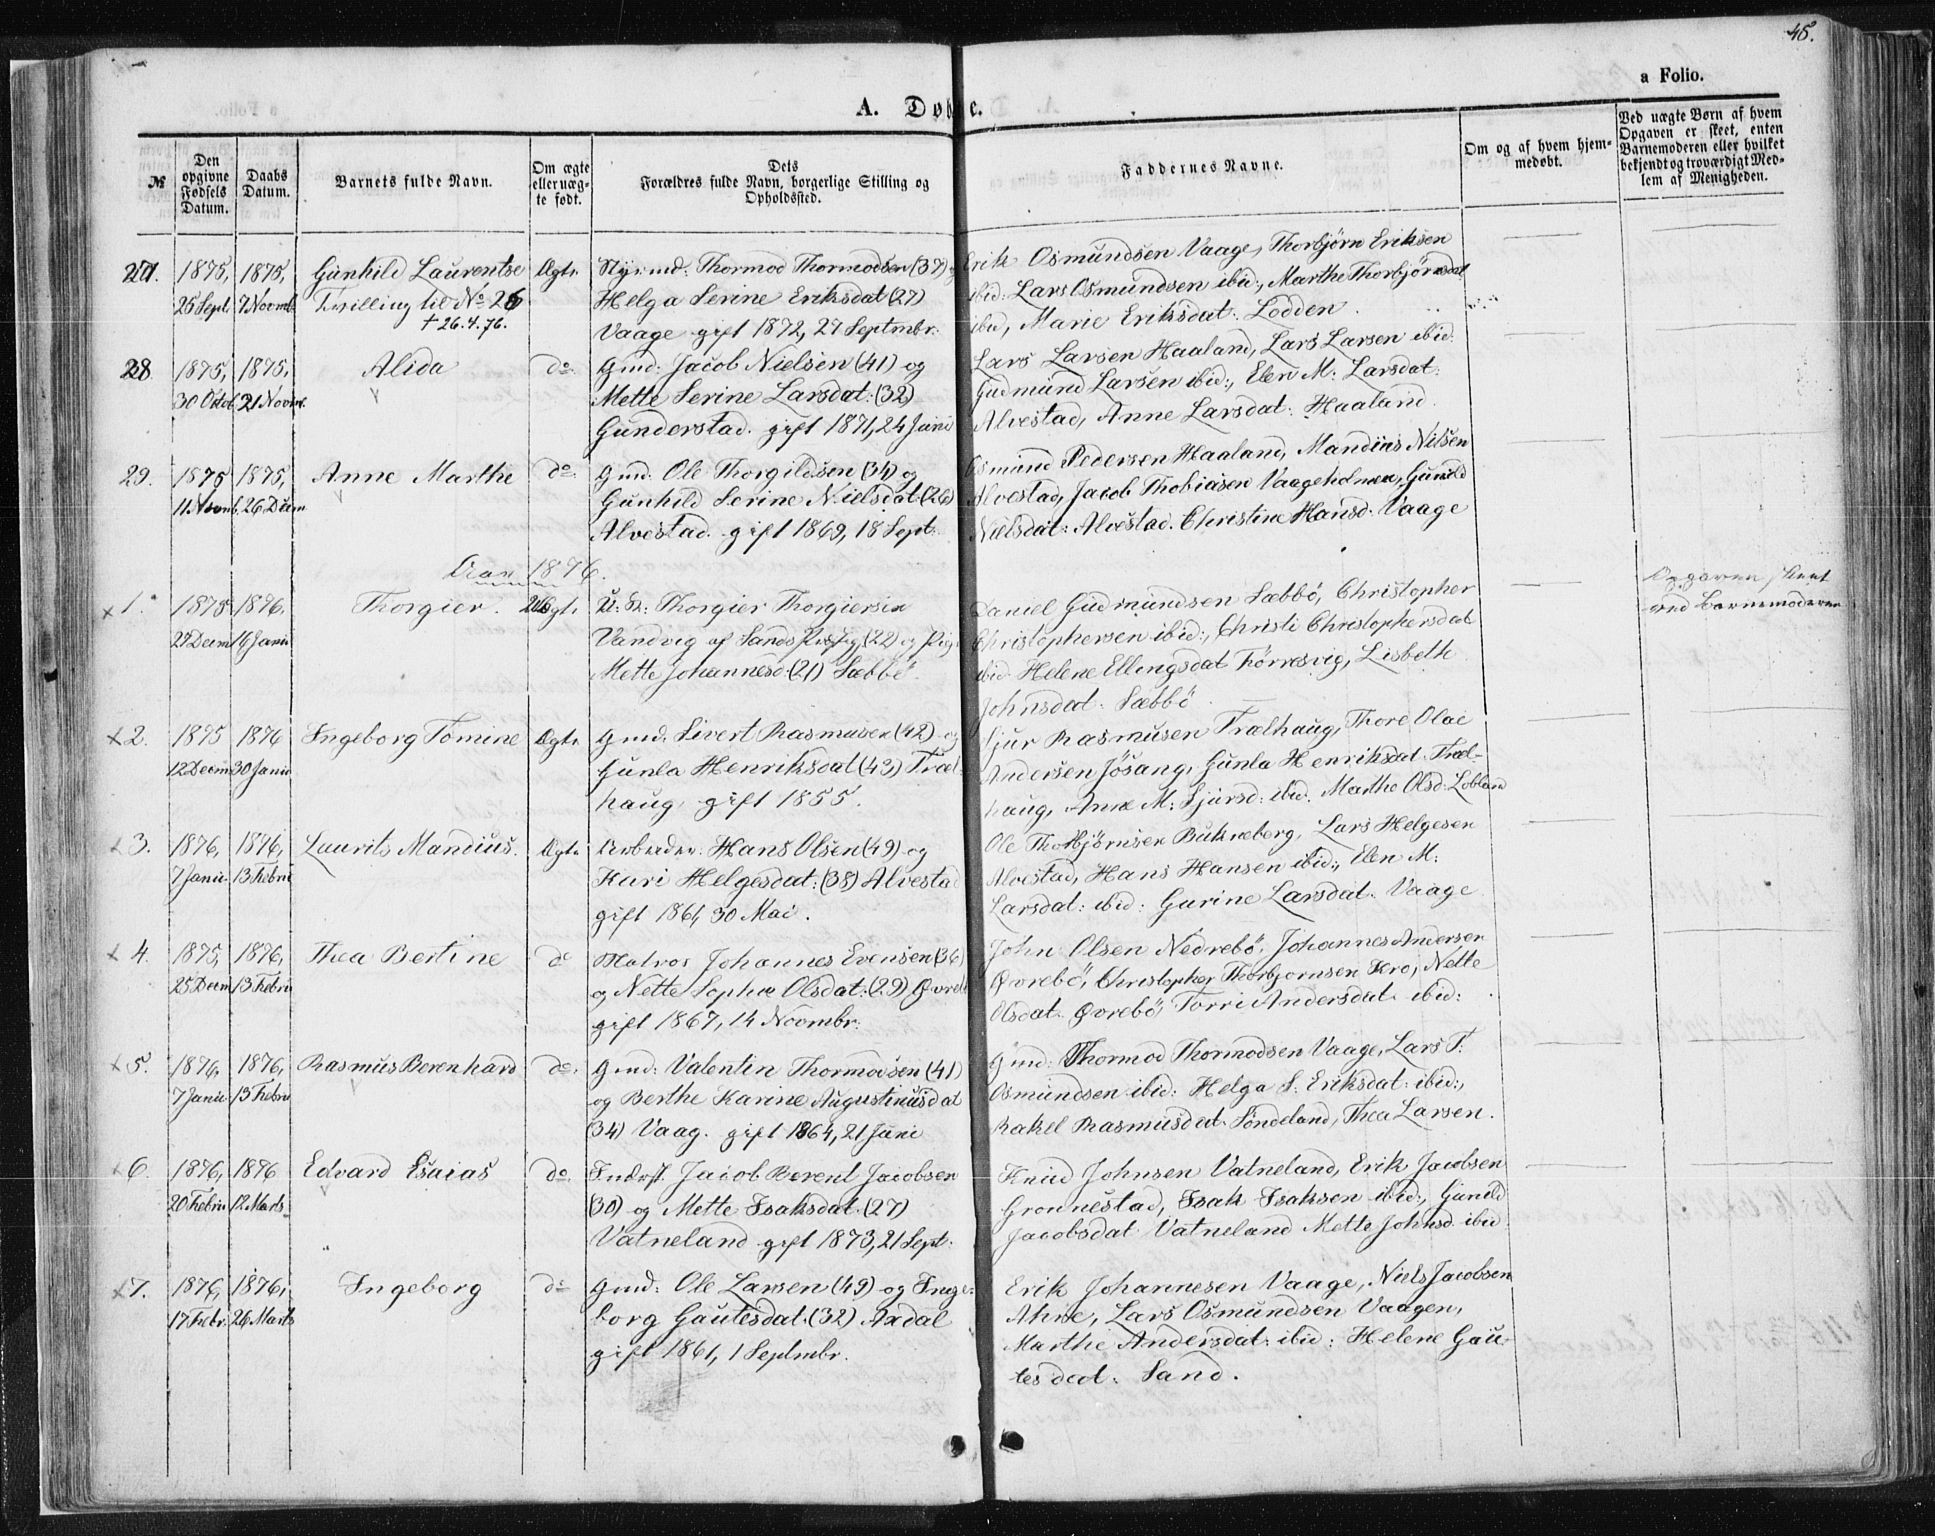 45.
a Folio.
A. Døbte.
№
Den opgivne Fødsels Datum.
Daabs Datum.
Barnets fulde Navn.
Om ægte eller uægte født.
Dets Forældres fulde Navn, borgerlige Stilling og Opholdssted.
Faddernes Navne.
Om og af hvem hjemmedøbt.
Ved uægte Børn af hvem Opgaven er skeet, enten Barnemoderen eller hvilket bekjendt og troværdigt Medlem af Menigheden.
27. 1875, 1875, Gunhild Laurentse Ægte Thormod Thormodsen (37) og Erik Osmundsen Vaage, Thorbjørn Eriksen
25 Sept. 7 Novmb. Tvilling til No 26 Helga Serine Eriksdat (27) ibid: Lars Osmundsen ibid:, Marthe Thorbjørnsdat
† 26.4.76. Vaage gift 1872, 27 Septmbr. ibid, Marie Eriksdat: Lodden.
28. 1875, 1875, Alida do Gmd: Jacob Nielsen (41) og Lars Larsen Haaland, Lars Larsen ibid:
30 Octob. 21 Novmb. Mette Serine Larsdat: (32) Gudmund Larsen ibid:, Elen M: Larsdat:
Gunderstad. gift 1871, 24 Juni Alvestad, Anne Larsdat: Haaland.
29. 1875 1875, Anne Marthe do Gmd. Ole Thorgildsen (34) og Osmund Pedersen Haaland, Mandius Nilsen
11 Novmb. 26 Decm Gunhild Serine Nielsdat (26) Alvestad, Jacob Thobiasen Vaageholmen, Gunild
Alvestad. gift 1869, 18 Sept. Nielsdat: Alvestad. Christine Hansd: Vaage
Aar 1876.
1. 1875 1876. Thorgier. Uægte U: K: Thorgier Thorgiersen Daniel Gudmundsen Sæbbö, Christopher Opgaven skeet
27 Decm 16 Janu Vandvig af Sands Præstg (22) og Pige Christophersen ibid:, Christi Christophersdat ved Barnemoderen
Mette Johannesd: (21) Sæbbö. ibid Helene Ellingsdat Törresvig, Lisbeth
Johnsdat: Sæbbö.
2. 1875 1876 Ingeborg Tomine Ægte Gmd: Sivert Rasmusen (42) og Sjur Rasmusen Trælhaug, Thore Olai
12 Decm 30 Janu Gunla Henriksdat (43) Træl- Andersen Jösang, Gunla Henriksdat Træl-
haug, gift 1855. haug, Anne M: Sjursd: ibid. Marthe Olsd: Lobland
3. 1876, 1876, Laurits Mandius. Ægte Arbeider: Hans Olsen (49) og Ole Thorbjørnsen Bukneberg, Lars Helgesen
7 Janu 13 Febru Kari Helgesdat: (38) Alvestad Alvestad, Hans Hansen ibid:, Elen M:
gift 1861, 30 Mai. Larsdat: ibid: Gurine Larsdat. Vaage
4. 1875, 1876, Thea Bertine do Matros Johannes Evensen (36) John Olsen Nedrebö, Johannes Andersen
25 Decm 13 Febru og Nette Sophie Olsdat: (29) Øvrebö Øvrebö, Christopher Thorbjornsen Kro, Nette
gift 1867, 14 Novmbr: Olsdat. Øvrebö, Torri Andersdat. ibid:
5. 1876, 1876, Rasmus Berenhard do. Gmd: Valentin Thormodsen (41) Gmd: Thormod Thormodsen Vaage, Lars T:
7 Janu 13 Febru og Berthe Karine Augustinusdat Osmundsen ibid: Helga S: Eriksdat: ibid:,
(34) Vaag. gift 1864, 21 Juni Rakel Rasmusdat. Söndeland, Thea Larsen.
6. 1876, 1876 Edvard Esaias do. Inderst. Jacob Berent Jacobsen Knud Johnsen Vatneland, Erik Jacobsen
20 Febru 12 Marts (30) og Mette Isaksdat. (27) Gronnestad, Isak Isaksen ibid:, Gunild
Vatneland gift 1873, 21 Sept. Jacobsdat Vatneland Mette Johnsd. ibid
7. 1876, 1876, Ingeborg do Gmd: Ole Larsen (49) og Inge- Erik Johannesen Vaage, Niels Jacobsen
17 Febr. 26 Marts borg Gautesdat. (32) Axdal Ahne, Lars Osmundsen Vaagen,
gift 1861, 1 Septmbr. Marthe Andersdat: ibid: Helene Gau-
tesdat: Sand.